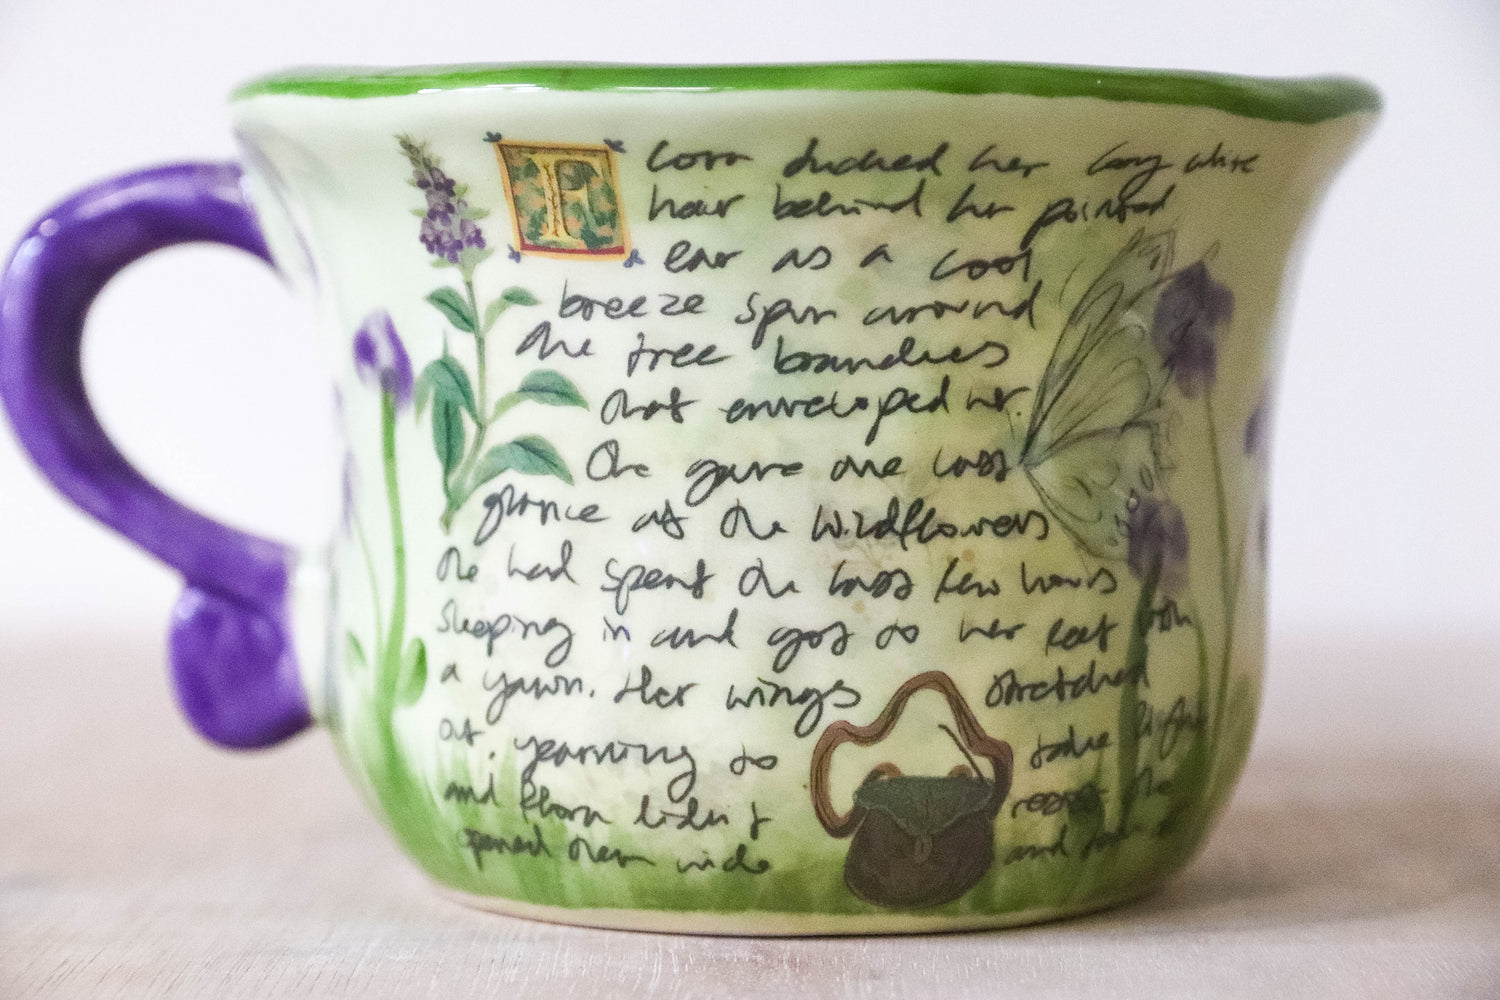 Florn ducked her long white
hair behind her pointed
ear as a cool
breeze spun around
the tree branches
that enveloped her.
She gave one last
glance at the wildflowers
she had spent the last few hours
sleeping in and got to her feet with
a yawn. Her wings stretched
out, yearning to take flight
and Florn didn't resist the
opened them wide and